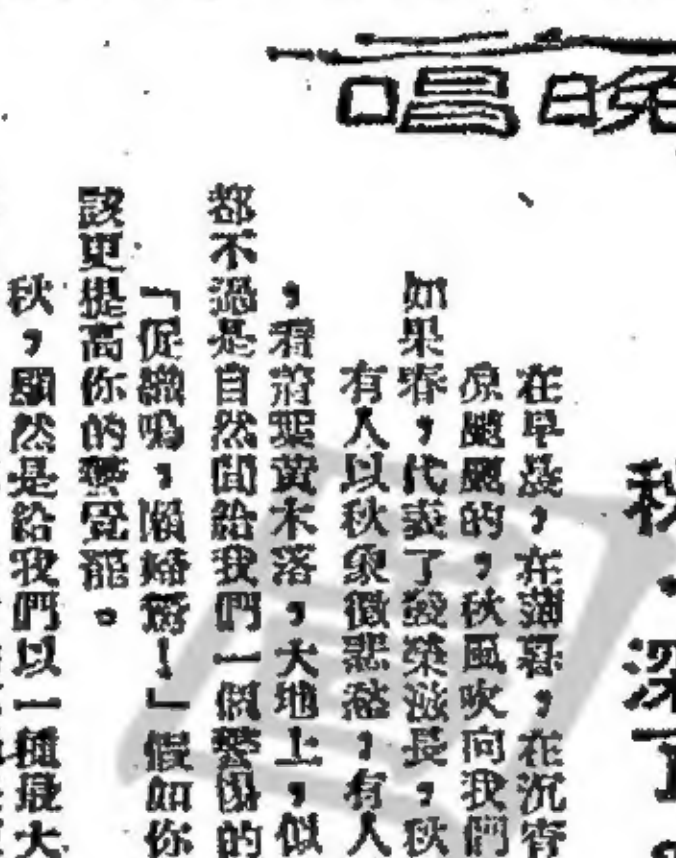 晚唱
秋，深
在早晨，在薄暮，在沉寄
凉颼颼的，秋風吹向我們
如果春，代表了發榮滋長，秋
有人以秋象徵悲愁，有人
，看葉黃木落，大地上，似
都不過是自然間給我們一個警惕的
「促織鳴，懶婦驚！」假如你
該更提高你的警覺罷。
秋，顯然是給我們以一種最大